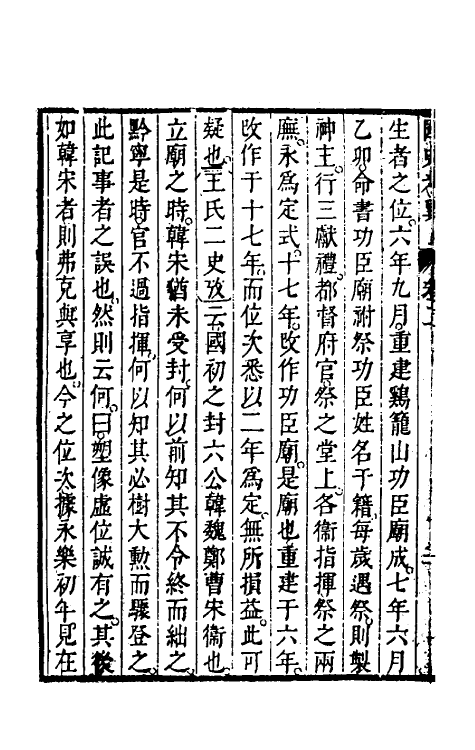 生者之位。六年九月。重建鷄籠山功臣廟成。七年六月
乙卯。命書功臣廟祔祭功臣姓名于籍。每歲遇祭。則製
神主。行三獻禮。都督府官。祭之堂上。各衞指揮祭之兩
廡。永爲定式。十七年。改作功臣廟。是廟也。重建于六年。
改作于十七年。而位次悉以二年爲定。無所損益。此可
疑也。王氏二史攷云。國初之封六公。韓魏鄭曹宋衞也。
立廟之時。韓宋猶未受封。何以前知其不令終而絀之。
黔寧是時官不過指揮。何以知其必樹大勲而驟登之。
此記事者之誤也。然則云何。曰。塑像虛位。誠有之。其後
如韓宋者。則弗克與享也。今之位次。據永樂初年見在